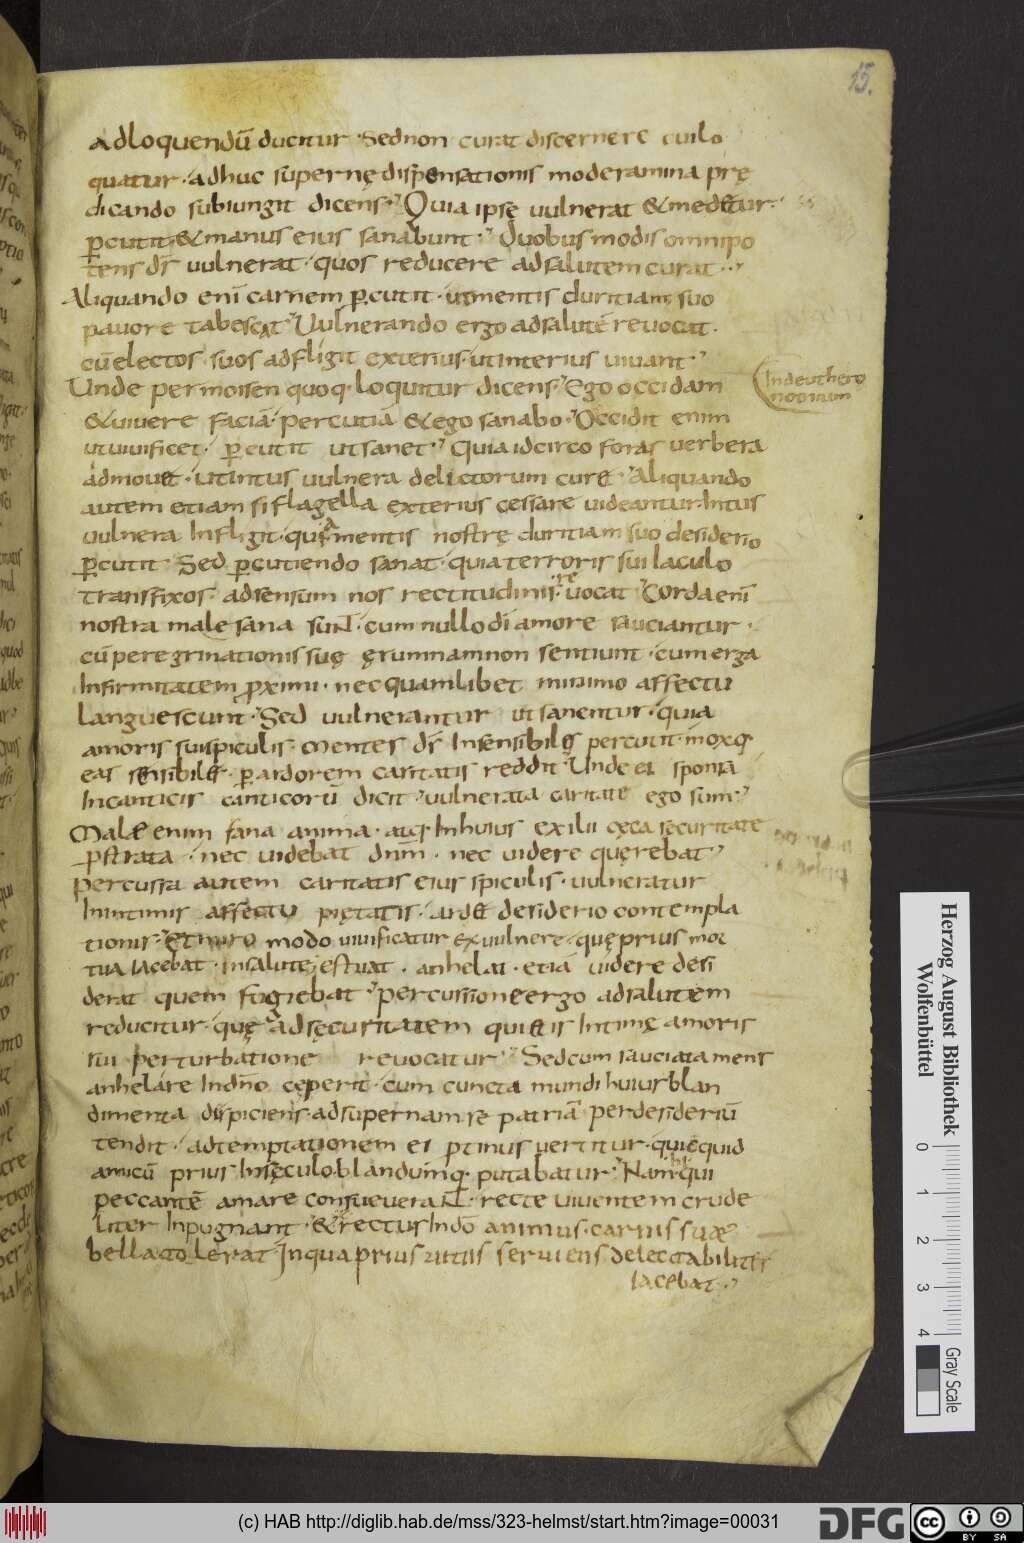 15.
adloquendū ducitur · Sed non curat discernere cui lo
quatur · adhuc supernę dispensationis moderamina prę
dicando subiungit dicens · Quia ipse uulnerat & med&ur ·
percutit & manus eius sanabunt · Duobus modis omnipo
tens ds̄ uulnerat · quos reducere ad salutem curat ·
Aliquando enī carnem percutit · ut mentis duritiam suo
pauore tabescat · Uulnerando ergo ad salutē reuocat ·
cū electos suos adfligit exterius · ut interius uiuant ·
Unde per moisen quoq· loquitur dicens · Ego occidam
& uiuere faciā · percutiā & ego sanabo · Occidit enim
ut uiuificet · percutit ut sanet · Quia idcirco foras uerbera
admou& · ut intus uulnera delictorum cur& · Aliquando
autem etiam si flagella exterius cessare uideantur · Intus
uulnera Infligit · quia mentis nostrę duritiam suo desiderio
percutit · Sed percutiendo sanat · quia terroris sui Iaculo
transfixos · ad sensum nos rectitudinis reuocat · Corda enī
nostra male sana sunt · cum nullo dī amore sauciantur ·
cū peregrinationis suę ęrumnam non sentiunt · cum erga
Infirmitatem proximi · nec quamlibet minimo affectu
languescunt · Sed uulnerantur ut sanentur · quia
amoris sui spiculis · mentes ds̄ Insensibiles percutit · moxq·
eas sensibiles · per ardorem caritatis reddit · Unde ei sponsa
In canticis canticorū dicit · uulnerata caritate ego sum ·
Malæ enim sana anima · atq· In huius exilii cęca securitate
prostrata · nec uidebat dnm̄ · nec uidere quęrebat ·
percussa autem caritatis eius spiculis · uulneratur
In intimis affectu piętatis · ard& desiderio contempla
tionis · Et miro modo uiuificatur ex uulnere · quę prius mor
tua Iacebat · In salute ęstuat · anhelat · etiā uidere desi
derat quem fugiebat · percussione ergo ad salutem
reducitur · quę ad sęcuritatem quietis Intimę amoris
sui perturbatione reuocatur · Sed cum sauciata mens
anhelare In dn̄o cęperit · cum cuncta mundi huius blan
dimenta dispiciens · ad supernam se patriā per desideriū
tendit · ad temptationem ei protinus uertitur · quicquid
amicū prius In sęculo blandumq· putabatur · Nam qui
peccantē amare consueuerant · recte uiuentem crude
liter Inpugnant · & rectus In dō animus · carnis suæ
bella tolerat · In qua prius uitiis seruiens delectabiliter
Iacebat ·
In deuthero
nomium
Herzog August Bibliothek
Wolfenbüttel
0 1 2 3 4
Gray Scale
(c) HAB http://diglib.hab.de/mss/323-helmst/start.htm?image=00031
DFG
cc BY SA